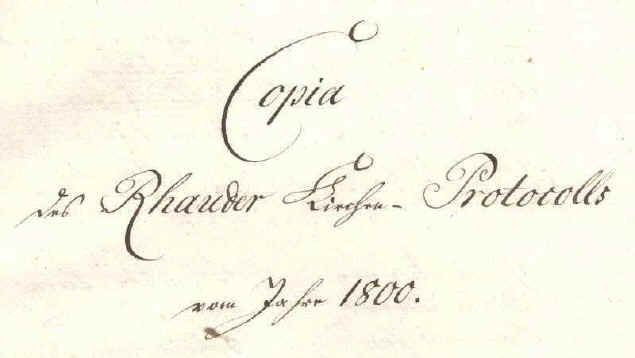 Copia
des Rhauder Kirchen- Protocolls
vom Jahre 1800.